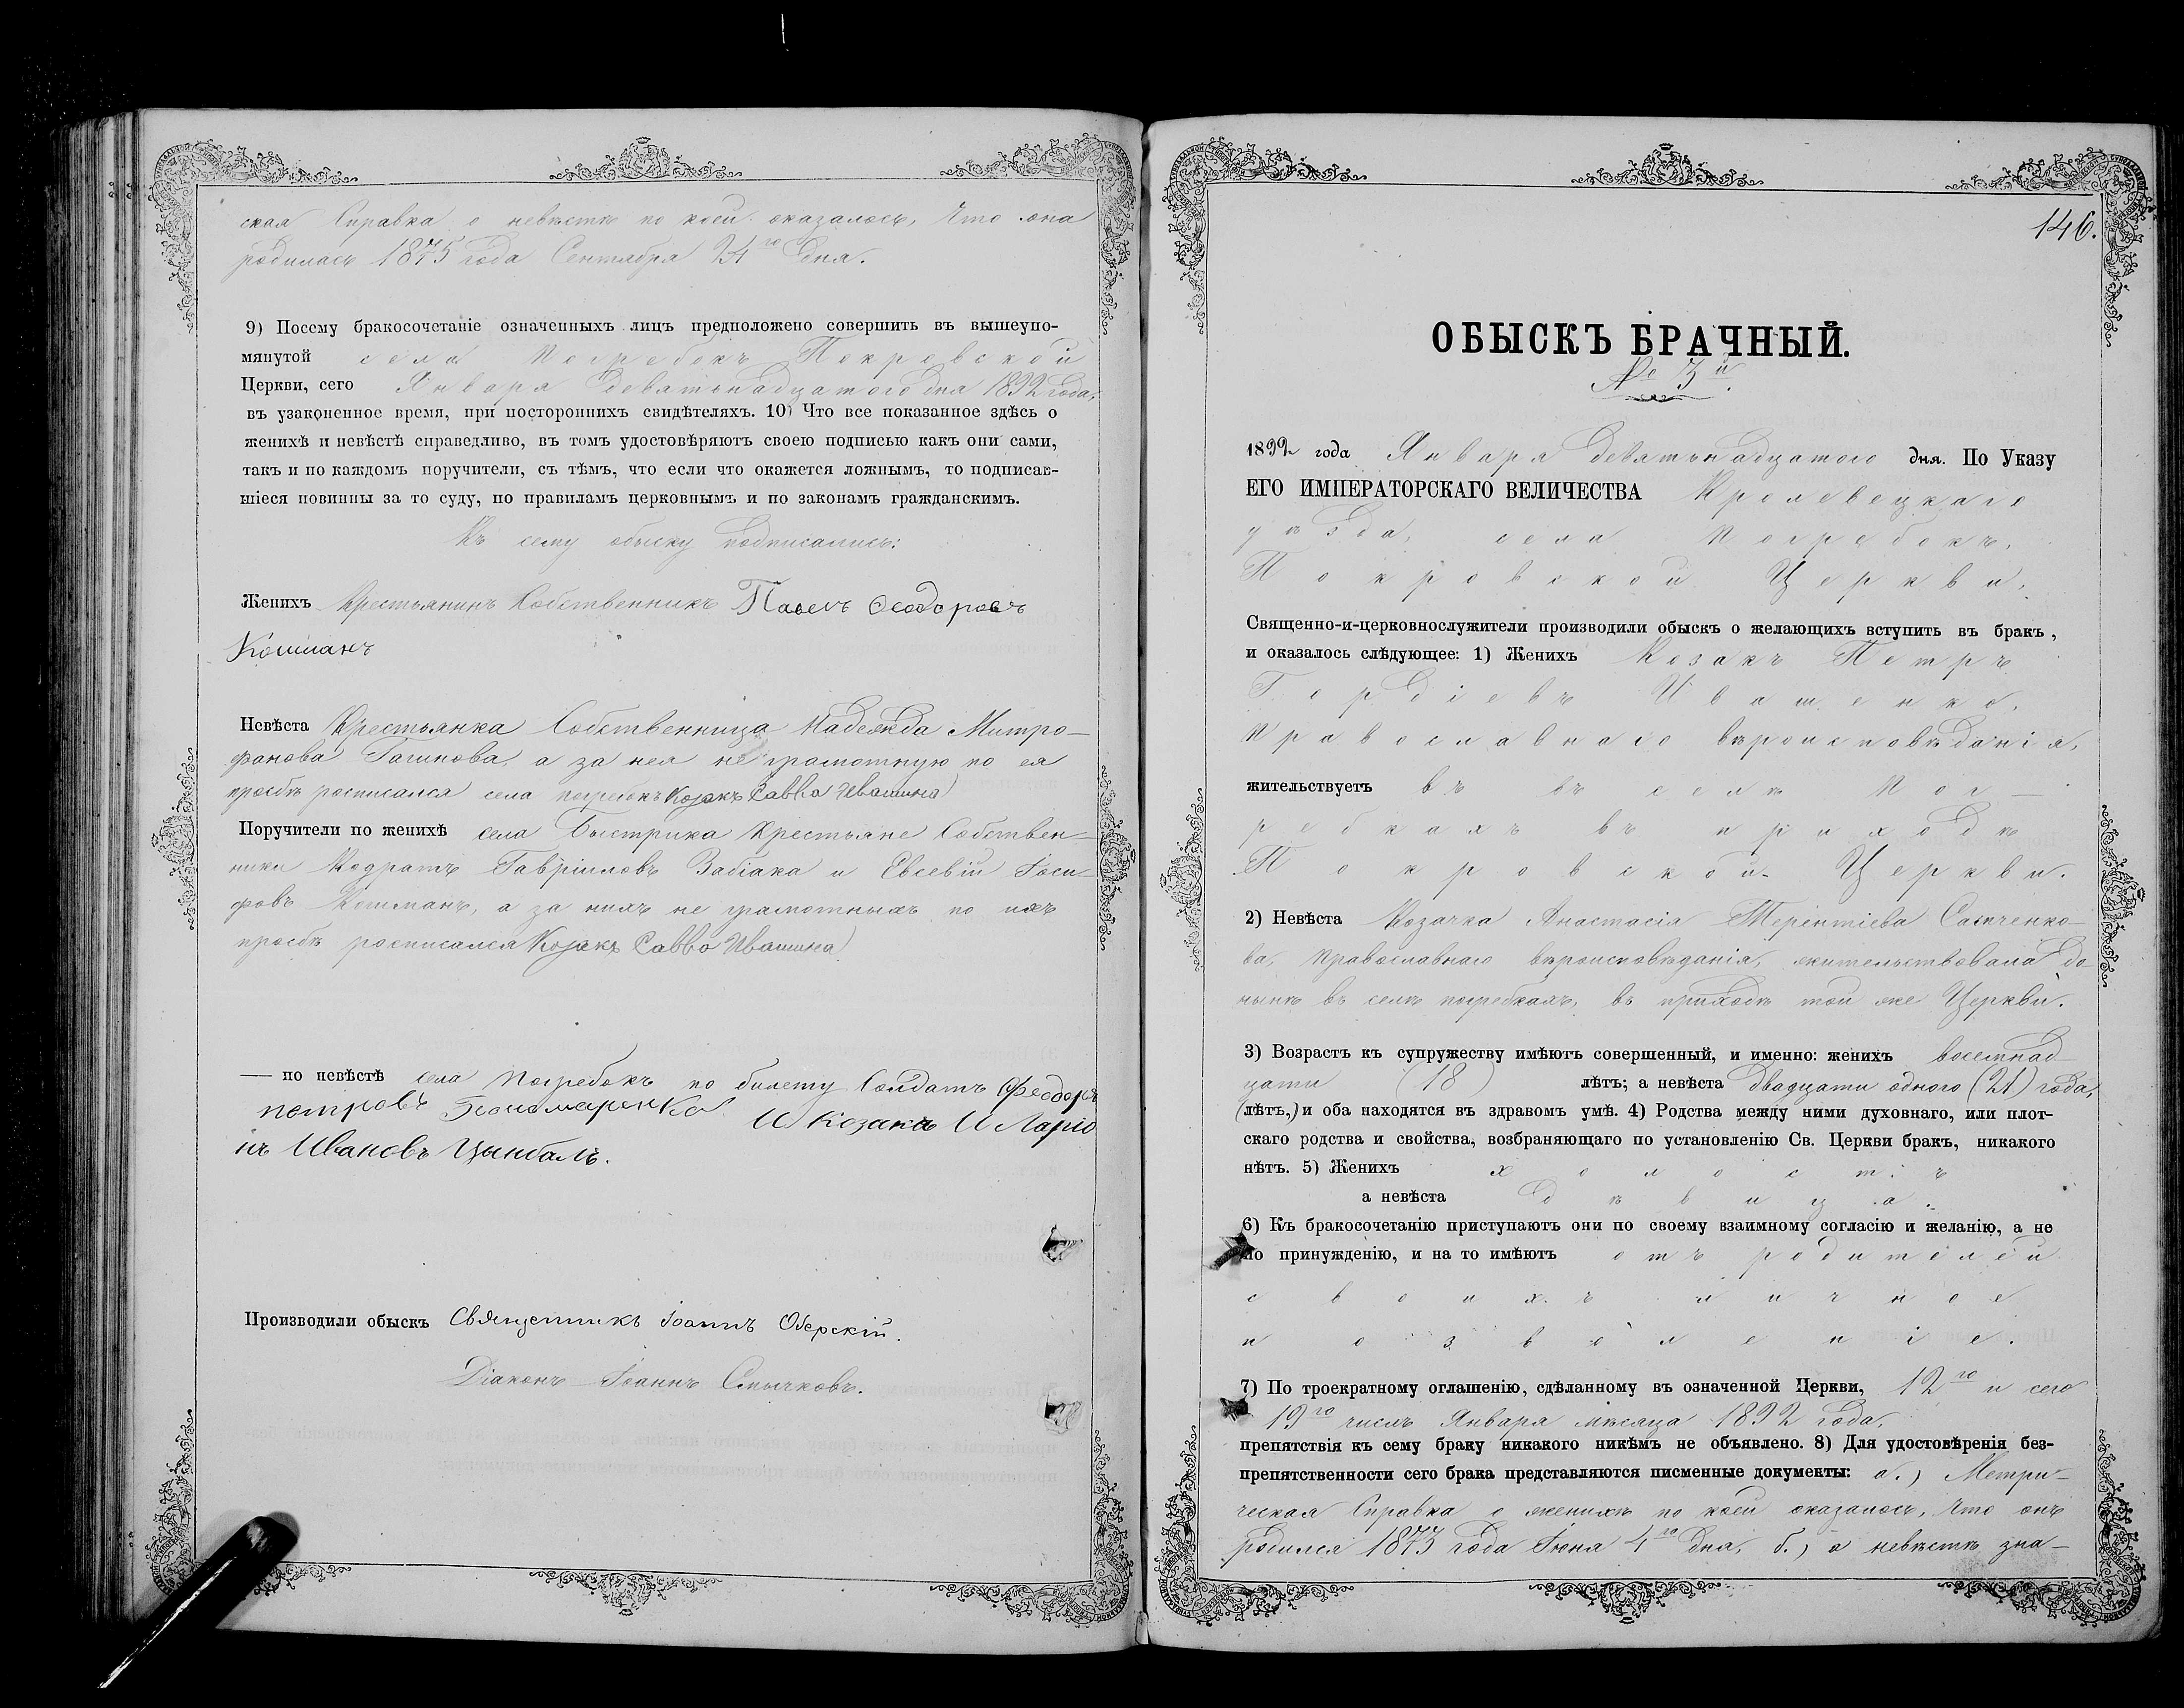 ская Справка о невѣстѣ по коей оказалось, что она
родилась 1875 года Сентября 24го дня.
9) Посему бракосочетаніе означенныхъ лицъ предположено совершить въ вышеупо-
мянутой села Погребокъ Покровской
Церкви, сего Января девятьнадцатого дня 1892 года,
въ узаконенное время, при постороннихъ свидѣтеляхъ. 10) Что все показанное здѣсь о
женихѣ и невѣстѣ справедливо, въ томъ удостовѣряютъ своею подписью какъ они сами,
такъ и по каждомъ поручители, съ тѣмъ, что если что окажется ложнымъ, то подписав-
шіеся повинны за то суду, по правиламъ церковнымъ и по законамъ гражданскимъ.
Къ сему обыску подписались:
Женихъ Крестьянинъ Собственникъ Павелъ Феодоровъ
Кошманъ
Невѣста Крестьянка Собственница Надежда Митро-
фанова Гагинова, а за нея не грамотную по ея
просьбѣ росписался села погребокъ Козакъ Савва Ивашина
Поручители по женихѣ села Быстрика Крестьяне Собствен-
ники Кодратъ Гавріиловъ Забіака и Евсевій Іоси-
фовъ Кошманъ, а за нихъ не грамотныхъ по ихъ
просьбѣ росписался Козакъ Савва Ивашина
— по невѣстѣ села Погребокъ по билету Солдатъ Феодоръ
петровъ Пономаренко И Козакъ И Ларіо
нъ Ивановъ Цымбалъ.
Производили обыскъ Священникъ Іоаннъ Озерскій.
Діаконъ Іоаннъ Смычковъ.
146.
ОБЫСКЪ БРАЧНЫЙ.
№ 3й.
1892 года Января девятьнадцатого дня. По Указу
ЕГО ИМПЕРАТОРСКАГО ВЕЛИЧЕСТВА Кролевецкаго
уѣзда, села Погребокъ,
Покровской Церкви,
Священно-и-церковнослужители производили обыскъ о желающихъ вступить въ бракъ,
и оказалось слѣдующее: 1) Женихъ Козакъ Петръ
Гордіевъ Ивашенко,
Православнаго вѣроисповѣданія,
жительствуетъ въ въ селѣ Пог-
ребкахъ въ приходѣ
Покровской Церкви.
2) Невѣста Козачка Анастасія Терінтіева Самченко-
ва, Православнаго вѣроисповѣданія, жительствовала до-
нынѣ въ селѣ погребкахъ, въ приходѣ той же Церкви.
3) Возрастъ къ супружеству имѣютъ совершенный, и именно: женихъ восемнад
цати (18) лѣтъ; а невѣста двадцати одного (21) года,
(лѣтъ,) и оба находятся въ здравомъ умѣ. 4) Родства между ними духовнаго, или плот-
скаго родства и свойства, возбраняющаго по установленію Св. Церкви бракъ, никакого
нѣтъ. 5) Женихъ холостъ
а невѣста дѣвица.
6) Къ бракосочетанію приступаютъ они по своему взаимному согласію и желанію, а не
по принужденію, и на то имѣютъ отъ родителей
своихъ личное
позволеніе.
7) По троекратному оглашенію, сдѣланному въ означенной Церкви, 12го и сего
19го числъ Января мѣсяца 1892 года,
препятствія къ сему браку никакого никѣмъ не объявлено. 8) Для удостовѣренія без-
препятственности сего брака представляются писменные документы: а.) Метри-
ческая Справка о женихѣ по коей оказалось, что онъ
родился 1873 года Іюня 4го дня, б.) о невѣстѣ зна-